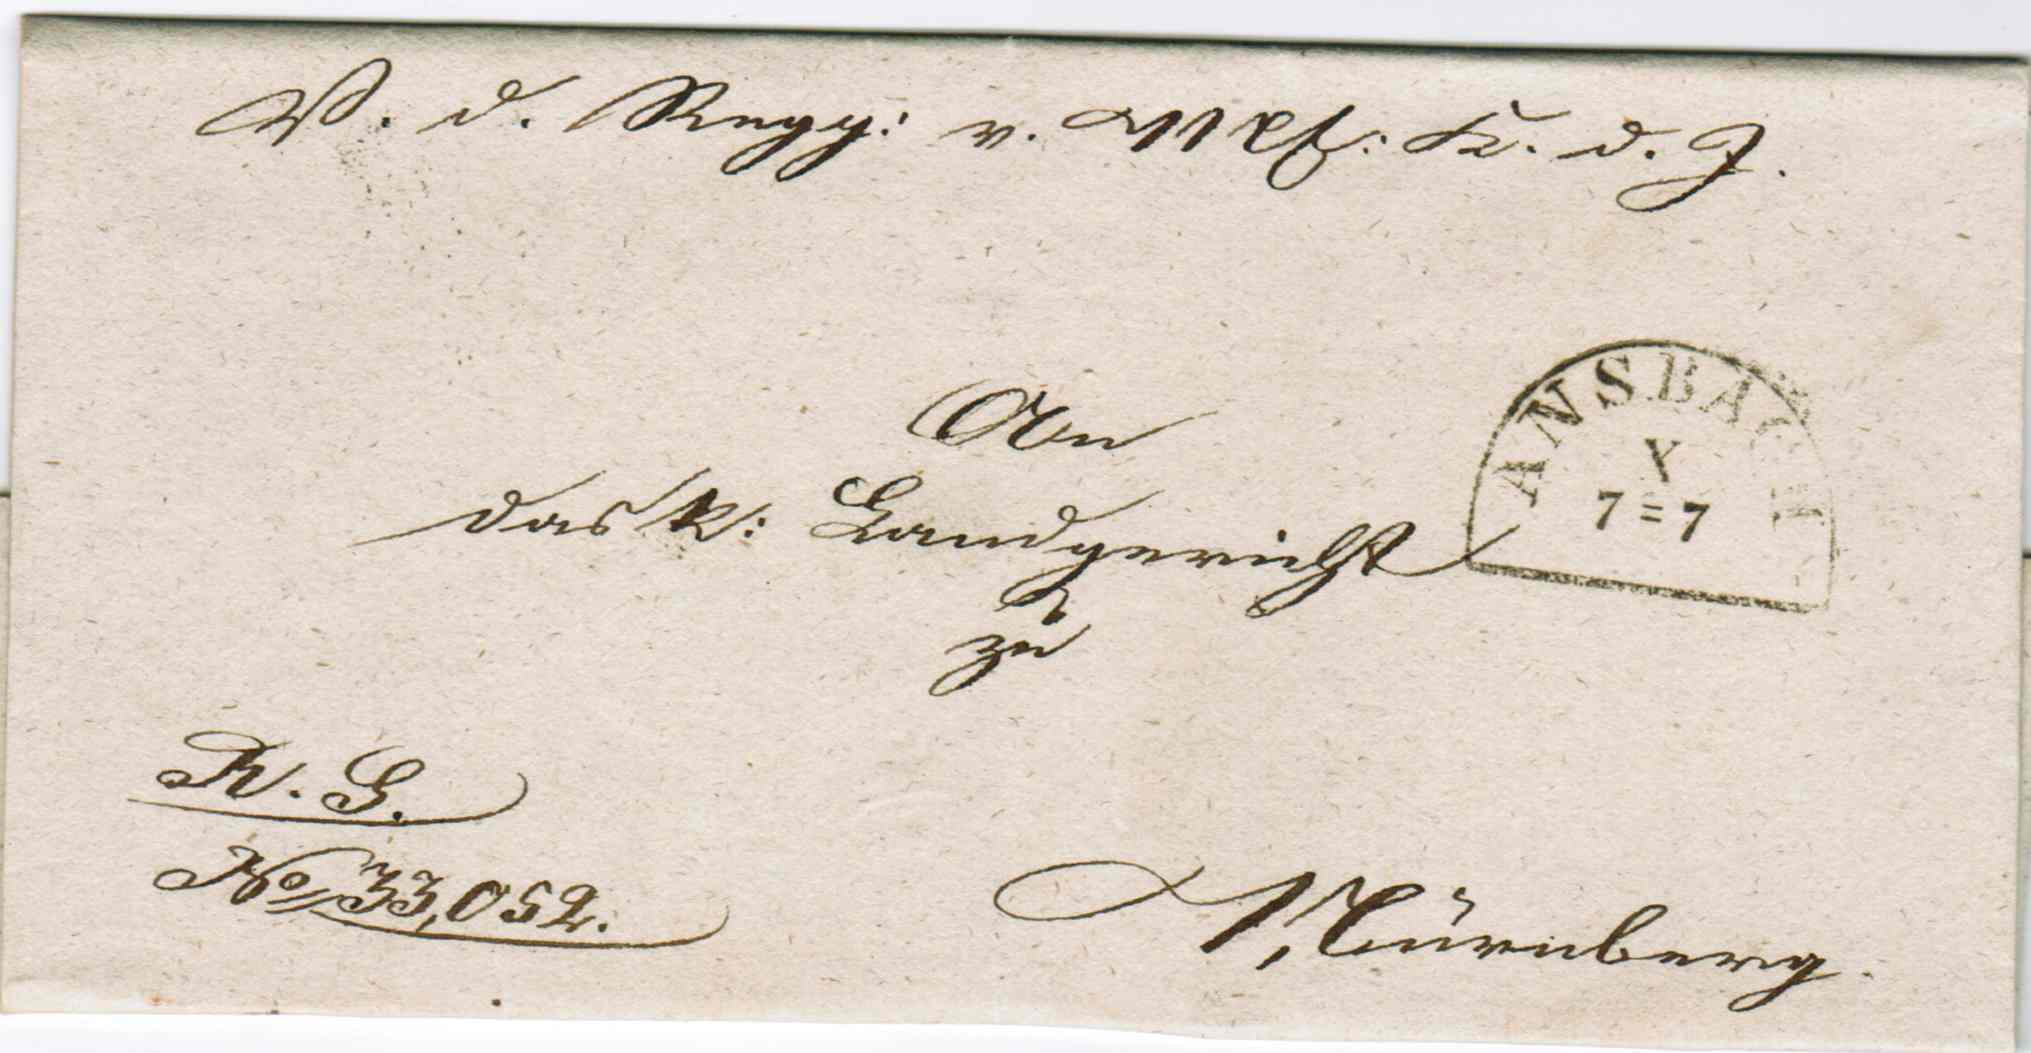 V. d. Regg: v. Mfr: K. d. J.
An
das K: Landgericht
zu
Nürnberg.
R. S.
No 33,052.
ANSBACH
X
7=7